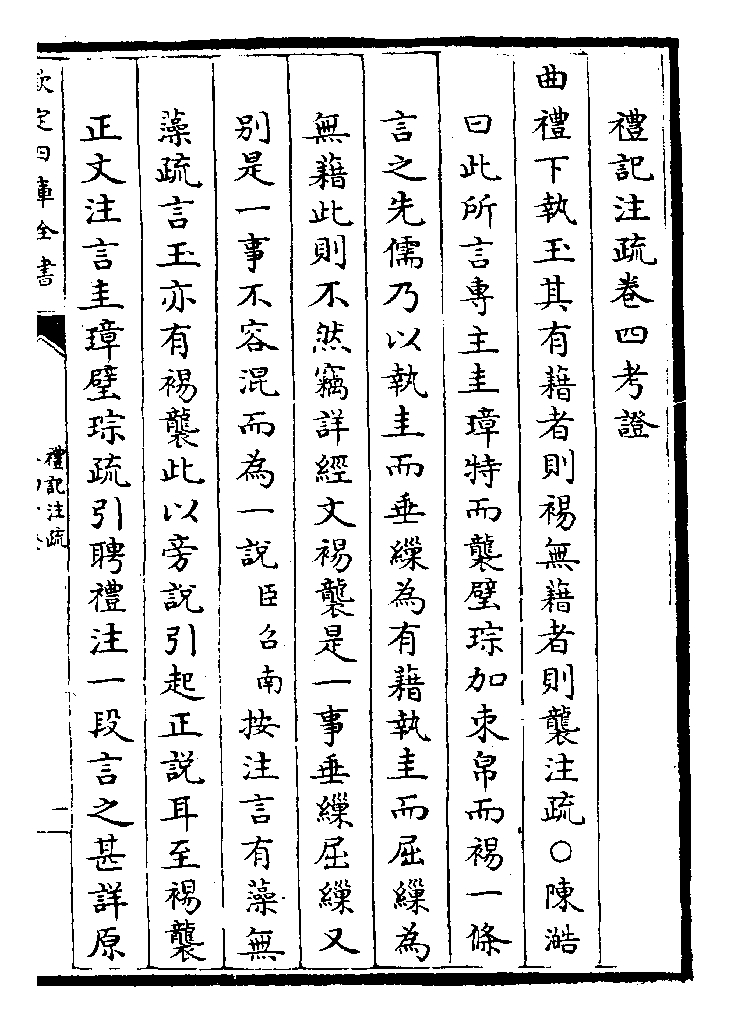 禮記注疏卷四考證
曲禮下執玉其有藉者則裼無藉者則襲注疏○陳澔
曰此所言專主圭璋特而襲璧琮加束帛而裼一條
言之先儒乃以執圭而垂繅為有藉執圭而屈繅為
無藉此則不然竊詳經文裼襲是一事垂繅屈繅又
別是一事不容混而為一說臣召南按注言有藻無
藻疏言玉亦有裼襲此以旁說引起正說耳至裼襲
正文注言圭璋璧琮疏引聘禮注一段言之甚詳原
欽定四庫全書
禮記注疏